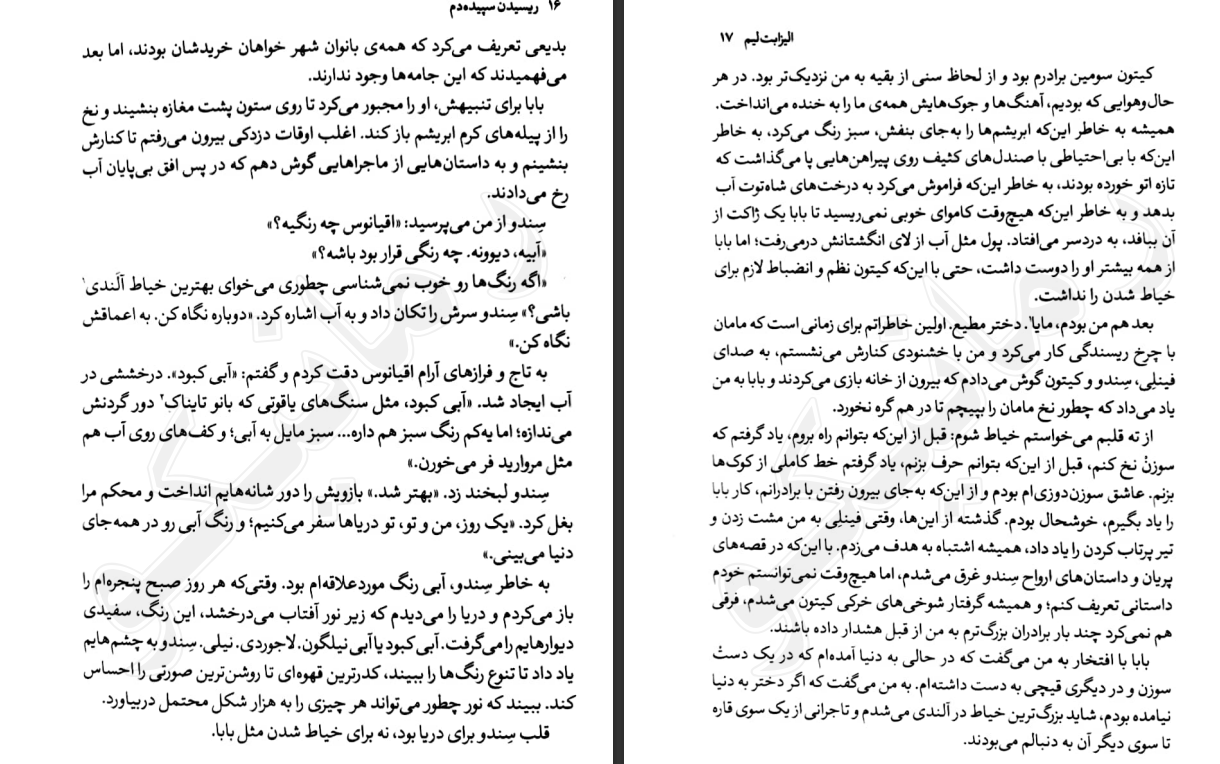 ۱۶ ریسیدن سپیده‌دم
بدیعی تعریف می‌کرد که همه‌ی بانوان شهر خواهان خریدشان بودند، اما بعد
می‌فهمیدند که این جامه‌ها وجود ندارند.
بابا برای تنبیهش، او را مجبور می‌کرد تا روی ستون پشت مغازه بنشیند و نخ
را از پیله‌های کرم ابریشم باز کند. اغلب اوقات دزدکی بیرون می‌رفتم تا کنارش
بنشینم و به داستان‌هایی از ماجراهایی گوش دهم که در پس افق بی‌پایان آب
رخ می‌دادند.
سِندو از من می‌پرسید: «اقیانوس چه رنگیه؟»
«آبیه، دیوونه. چه رنگی قرار بود باشه؟»
«اگه رنگ‌ها رو خوب نمی‌شناسی چطوری می‌خوای بهترین خیاط آلَندی۱
باشی؟» سِندو سرش را تکان داد و به آب اشاره کرد. «دوباره نگاه کن. به اعماقش
نگاه کن.»
به تاج و فرازهای آرام اقیانوس دقت کردم و گفتم: «آبی کبود». درخششی در
آب ایجاد شد. «آبی کبود، مثل سنگ‌های یاقوتی که بانو تایناک۲ دور گردنش
می‌ندازه؛ اما یه‌کم رنگ سبز هم داره... سبز مایل به آبی؛ و کف‌های روی آب هم
مثل مروارید فر می‌خورن.»
سِندو لبخند زد. «بهتر شد.» بازویش را دور شانه‌هایم انداخت و محکم مرا
بغل کرد. «یک روز، من و تو، تو دریاها سفر می‌کنیم؛ و رنگ آبی رو در همه‌جای
دنیا می‌بینی.»
به خاطر سِندو، آبی رنگ موردعلاقه‌ام بود. وقتی‌که هر روز صبح پنجره‌ام را
باز می‌کردم و دریا را می‌دیدم که زیر نور آفتاب می‌درخشد، این رنگ، سفیدی
دیوارهایم را می‌گرفت. آبی کبود یا آبی نیلگون. لاجوردی. نیلی. سِندو به چشم‌هایم
یاد داد تا تنوع رنگ‌ها را ببیند، کدرترین قهوه‌ای تا روشن‌ترین صورتی را احساس
کند. ببیند که نور چطور می‌تواند هر چیزی را به هزار شکل محتمل دربیاورد.
قلب سِندو برای دریا بود، نه برای خیاط شدن مثل بابا.
الیزابت لیم ۱۷
کیتون سومین برادرم بود و از لحاظ سنی از بقیه به من نزدیک‌تر بود. در هر
حال‌وهوایی که بودیم، آهنگ‌ها و جوک‌هایش همه‌ی ما را به خنده می‌انداخت.
همیشه به خاطر این‌که ابریشم‌ها را به‌جای بنفش، سبز رنگ می‌کرد، به خاطر
این‌که با بی‌احتیاطی با صندل‌های کثیف روی پیراهن‌هایی پا می‌گذاشت که
تازه اتو خورده بودند، به خاطر این‌که فراموش می‌کرد به درخت‌های شاه‌توت آب
بدهد و به خاطر این‌که هیچ‌وقت کاموای خوبی نمی‌ریسید تا بابا یک ژاکت از
آن ببافد، به دردسر می‌افتاد. پول مثل آب از لای انگشتانش درمی‌رفت؛ اما بابا
از همه بیشتر او را دوست داشت، حتی با این‌که کیتون نظم و انضباط لازم برای
خیاط شدن را نداشت.
بعد هم من بودم، مایا۱. دختر مطیع. اولین خاطراتم برای زمانی است که مامان
با چرخ ریسندگی کار می‌کرد و من با خشنودی کنارش می‌نشستم، به صدای
فینلی، سِندو و کیتون گوش می‌دادم که بیرون از خانه بازی می‌کردند و بابا به من
یاد می‌داد که چطور نخ مامان را بپیچم تا در هم گره نخورد.
از ته قلبم می‌خواستم خیاط شوم: قبل از این‌که بتوانم راه بروم، یاد گرفتم که
سوزن نخ کنم، قبل از این‌که بتوانم حرف بزنم، یاد گرفتم خط کاملی از کوک‌ها
بزنم. عاشق سوزن‌دوزی‌ام بودم و از این‌که به‌جای بیرون رفتن با برادرانم، کار بابا
را یاد بگیرم، خوشحال بودم. گذشته از این‌ها، وقتی فینلِی به من مشت زدن و
تیر پرتاب کردن را یاد داد، همیشه اشتباه به هدف می‌زدم. با این‌که در قصه‌های
پریان و داستان‌های ارواح سِندو غرق می‌شدم، اما هیچ‌وقت نمی‌توانستم خودم
داستانی تعریف کنم؛ و همیشه گرفتار شوخی‌های خرکی کیتون می‌شدم، فرقی
هم نمی‌کرد چند بار برادران بزرگ‌ترم به من از قبل هشدار داده باشند.
بابا با افتخار به من می‌گفت که در حالی به دنیا آمده‌ام که در یک دستْ
سوزن و در دیگری قیچی به دست داشته‌ام. به من می‌گفت که اگر دختر به دنیا
نیامده بودم، شاید بزرگ‌ترین خیاط در آلندی می‌شدم و تاجرانی از یک سوی قاره
تا سوی دیگر آن به دنبالم می‌بودند.
رمانیکو
رمانیکو